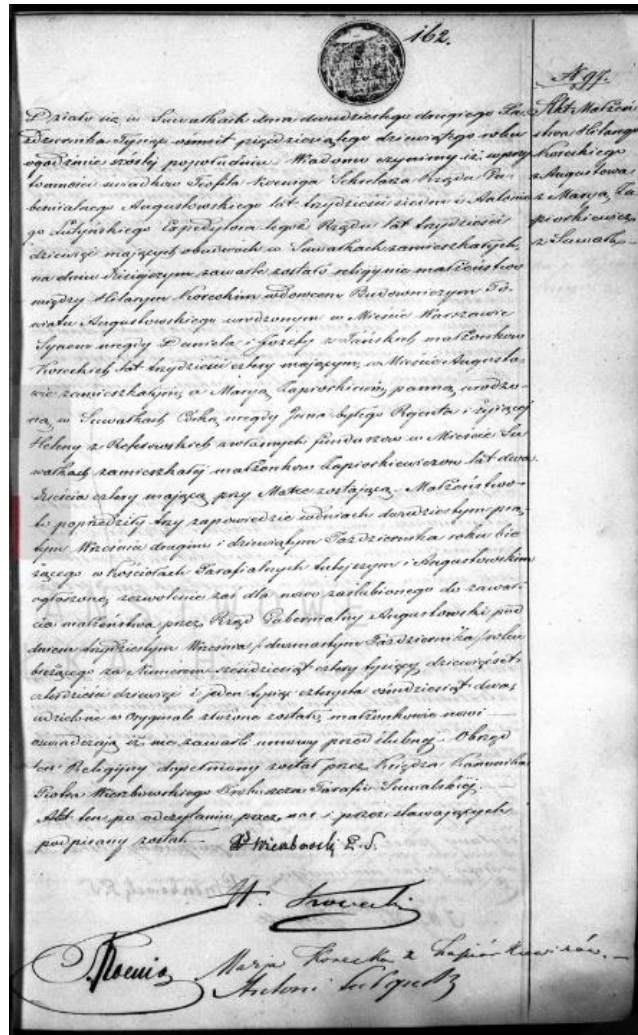 162.
N 97.
Akt Małżeń
stwa Hilarego
Koreckiego
z Augustowa
z Maryą Ła
piorkiewicz
z Suwałk
Działo się w Suwałkach dnia dwudziestego drugiego Pa
ździernika Tysiąc ośmset pięćdziesiątego dziewiątego roku
o godzinie szóstej popołudniu. Wiadomo czynimy iż w przy
tomności świadków Teofila Koeniga Sekretarza Rządu Gu
bernialnego Augustowskiego lat trzydzieści siedm i Antonie
go Expedytora tegoż Rządu lat trzydzieści
dziewięć mających obudwóch w Suwałkach zamieszkałych,
na dniu dzisiejszym zawarte zostało religijnie małżeństwo
między Hilarym Koreckim wdowcem Budowniczym Po
wiatu Augustowskiego urodzonym w Mieście Warszawie
Synem niegdy Daniela i Józefy z Jańskich małżonków
Koreckich lat trzydzieści cztery mającym, w Mieście Augusto
wie zamieszkałym, a Maryą Łapiorkiewicz panną urodzo
ną w Suwałkach Córką niegdy Jana byłego Rejenta i żyjącej
Heleny z Referowskich z własnych funduszów w Mieście Su
wałkach zamieszkałej małżonków Łapiorkiewiczów lat dwa
dzieścia cztery mającą przy Matce zostającą. Małżeństwo
to poprzedziły trzy zapowiedzie w dniach dwudziestym pią
tym Września drugim i dziewiątym Października roku bie
żącego w Kościołach Parafialnych tutejszym i Augustowskim
ogłoszone, zezwolenie zaś dla nowo zaślubionego do zawar
cia małżeństwa przez Rząd Gubernialny Augustowski pod
dniem trzydziestym Września / dwunastym Października / roku
bieżącego za Numerem sześćdziesiąt cztery tysiące dziewięćset
czterdzieści dziewięć i jeden tysiąc czterysta ośmdziesiąt dwa
udzielone w Oryginale złożone zostało, małżonkowie nowi
oświadczają iż nie zawarli umowy przedślubnej. Obrzęd
ten Religijny dopełniony został przez Księdza Kanonika
Piotra Wierzbowskiego Proboszcza Parafii Suwalskiej.
Akt ten po odczytaniu przez nas i przez stawających
podpisany został.
X P Wierzbowski P. S.
H. Korecki
T. Koenig
Marja Korecka z Łapiórkiewiczów.
Antoni